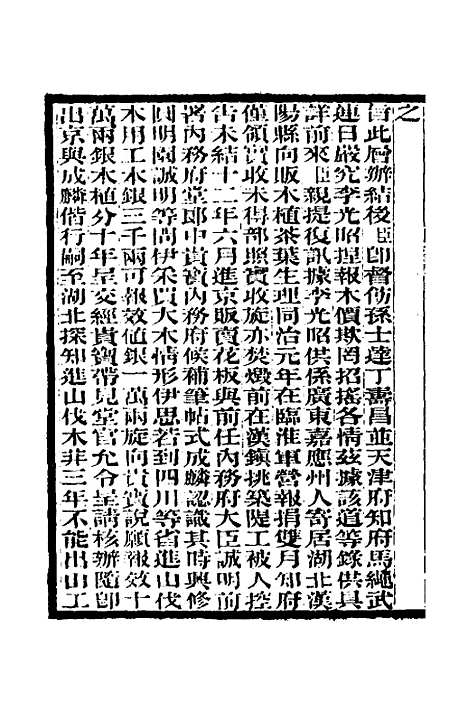 之
曾此層辦結後臣卽督飭孫士達丁壽昌並天津府知府馬繩武
連日嚴究李光昭揑報木價欺罔招搖各情茲據該道等錄供具
詳前來臣親提復訊據李光昭供係廣東嘉應州人寄居湖北漢
陽縣向販木植茶葉生理同治元年在臨淮軍營報捐雙月知府
僅領實收未得部照實收旋亦焚燬前在漢鎮挑築隄工被人控
告未結十二年六月進京販賣花板與前任內務府大臣誠明前
署內務府堂郞中貴寶內務府候補筆帖式成麟認識其時興修
圓明園誠明等問伊采買大木情形伊思若到四川等省進山伐
木用工本銀三千兩可報效値銀一萬兩旋向貴寶說願報效十
萬兩銀木植分十年呈交經貴寶帶見堂官允令呈請核辦隨卽
出京與成麟偕行嗣至湖北探知進山伐木非三年不能出山工